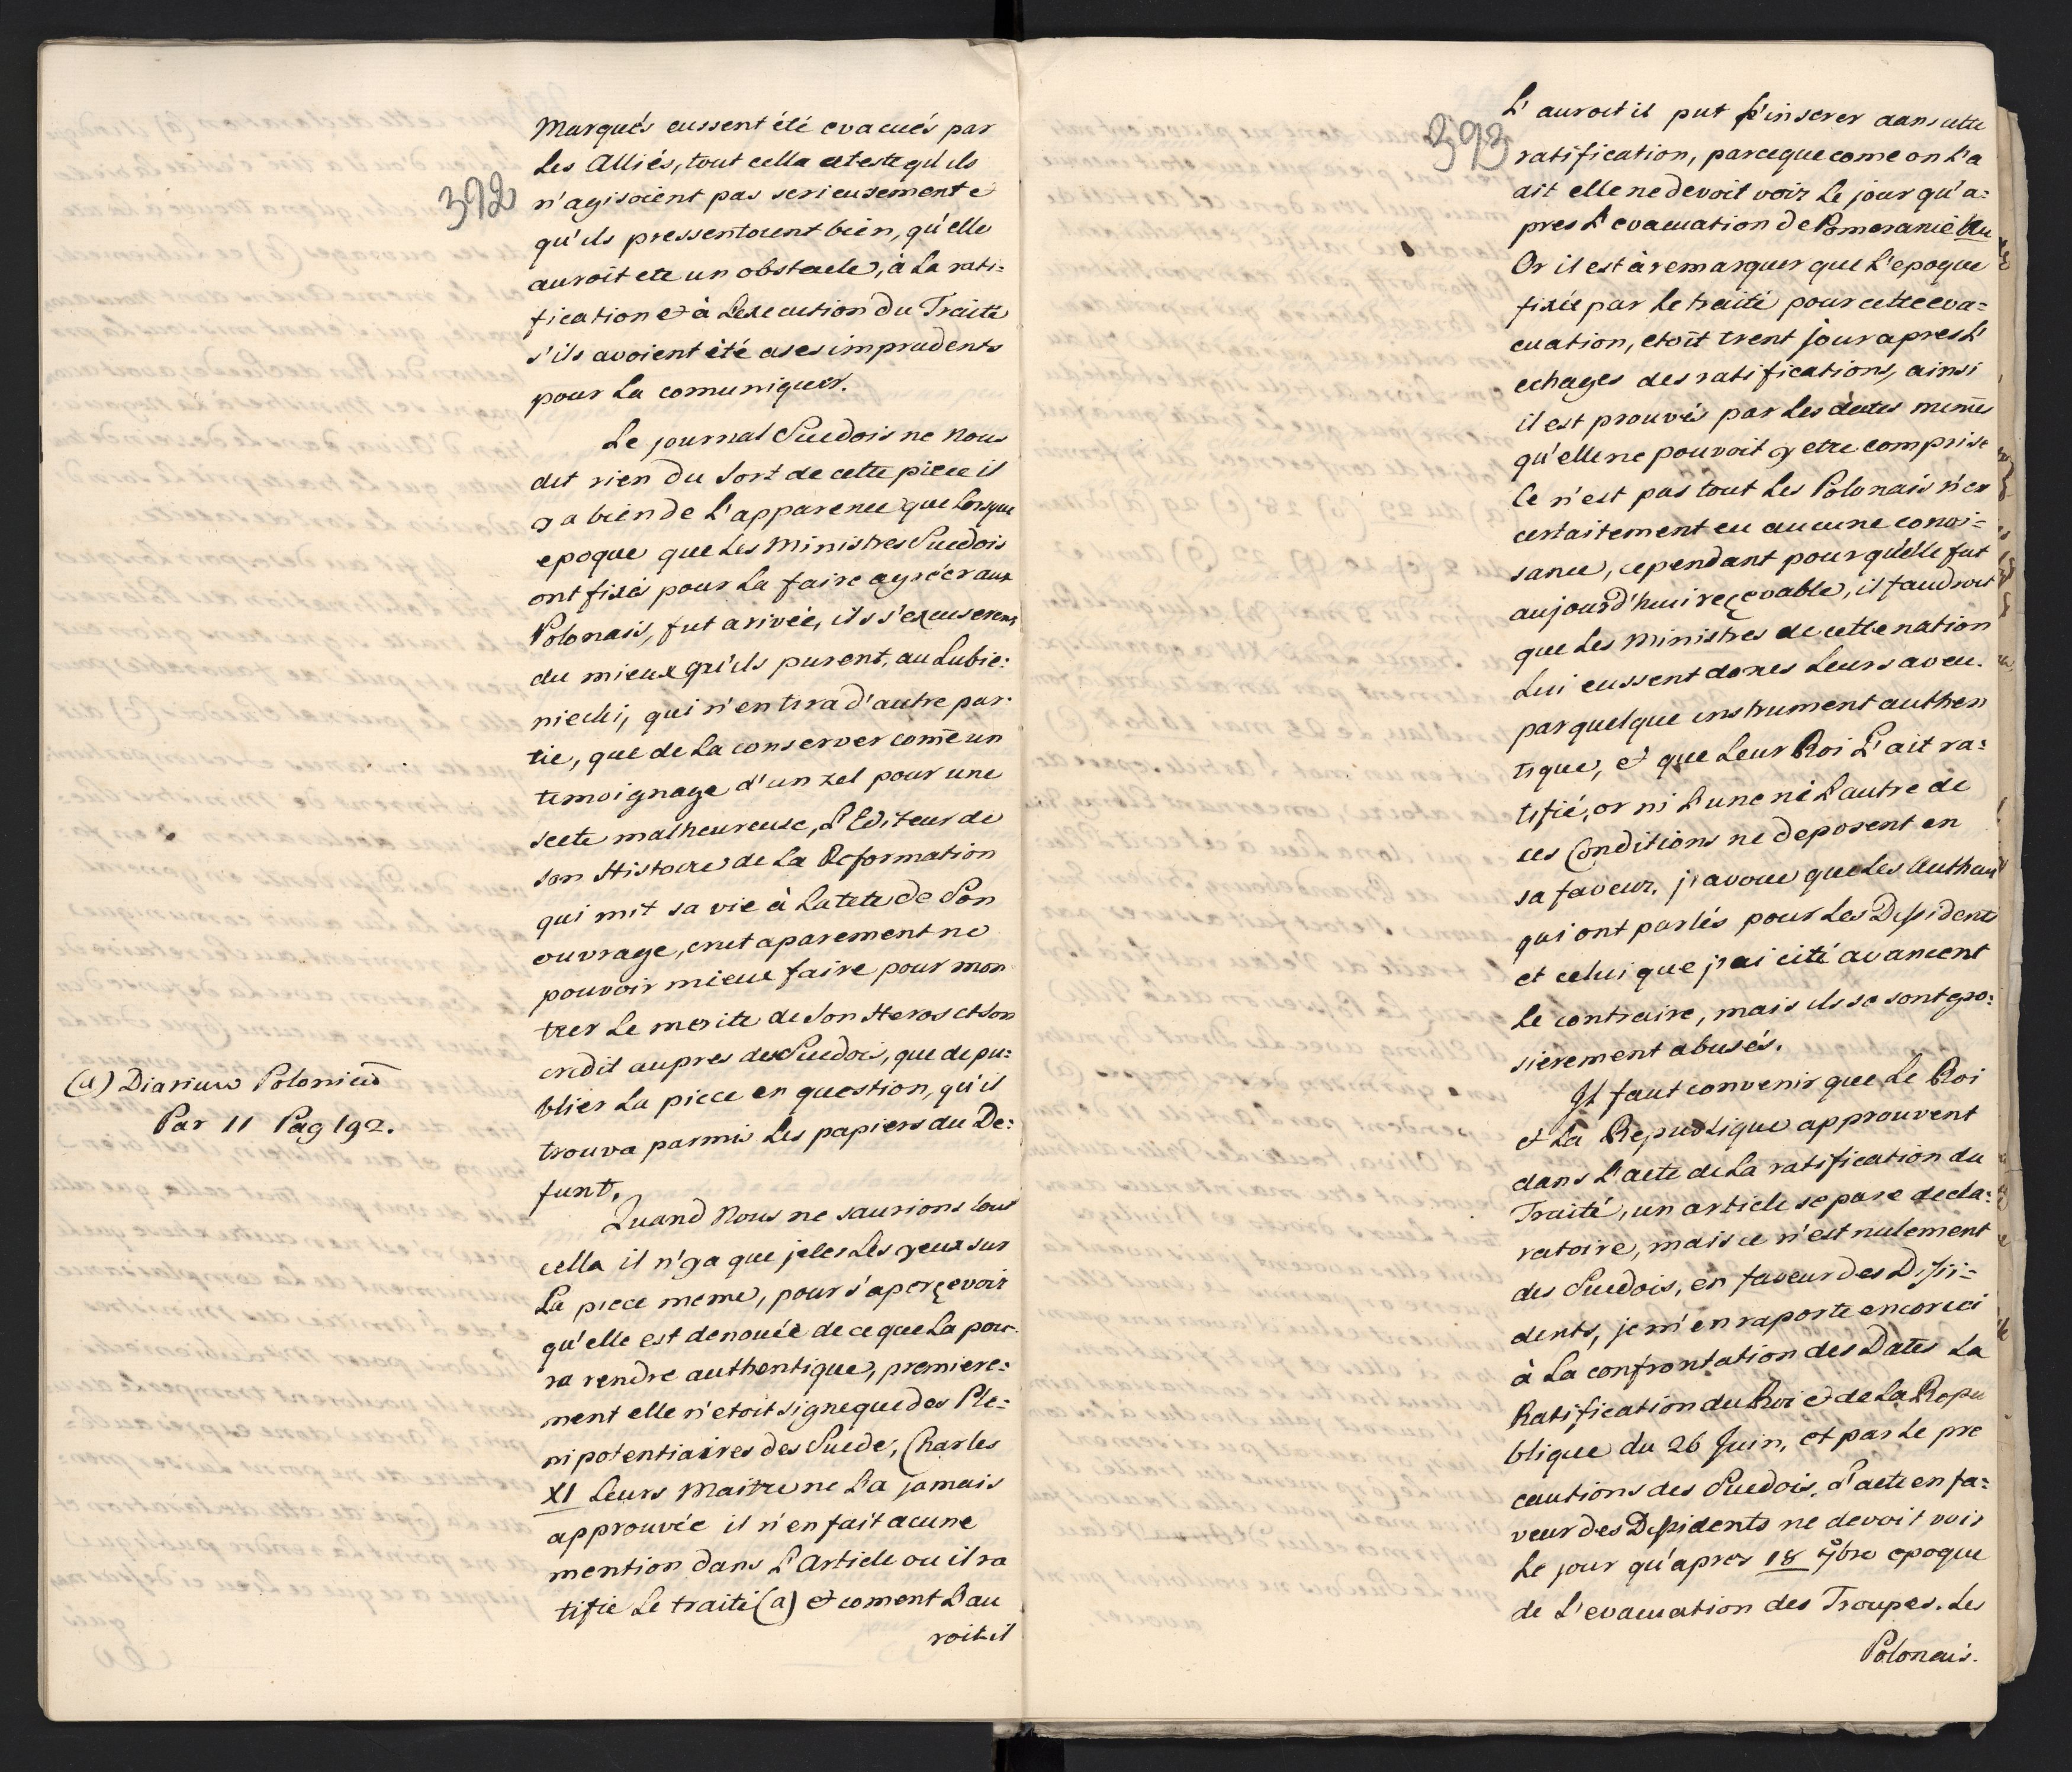 392
Marqués eussent été evacués par
Les Alliés, tout cella atteste qu'ils
n'agisoient pas serieusement e
qu'ils pressentoient bien, qu'elle
auroit ete un obstacle, à La rati=
fication et à Lexecution du Traité
s'ils avoient été ases imprudents
pour La comuniquer.
Le journal Suedois ne Nous
dit rien du Sort de cette piece il
y a bien de L'apparence que Lorsque
epoque que Les Ministres Suedois
ont fixés pour La faire agréer aux
Polonais, fut arivée, ils s'excuserent
du mieux qu'ils purent, au Lubie:
niecki, qui n'en tira d'autre par:
tie, que de La conserver come un
temoignage d'un zel pour une
secte malheureuse, L'Editeur de
son Histoire de La Reformation
qui mit sa vie à La tete de Son
ouvrage, crut aparement ne
pouvoir mieux faire pour mon
trer Le merite de Son Heros et son
credit aupres des Suedois, que de pu=
blier La piece en question, qu'il
trouva parmis Les papiers du De=
funt.
Quand Nous ne saurions tout
cella il n'ya que jeter Les yeux sur
La piece meme, pour s'aperçevoir
qu'elle est denouée de ce que La pour
ra rendre authentique, premiere=
ment elle n'etoit signe que des Ple=
nipotentiaires des Suede, Charles
XI Leurs Maitre ne L'a jamais
approuvée il n'en fait acune
mention dans L'Article ou il ra
tifie Le traité (a) et coment L'au
roit il
(a) Diarium Polonicū
Par 11 Pag 192.
393
L'auroit il put s'inserer dans cette
ratification, parceque come on L'a
dit elle ne devoit voir Le jour qu'a=
pres L'evacuation de Pomeranie
Or il est à remarquer que L'epoque
fixée par Le traité pour cette eva=
cuation, etoit trent jour apres L'
echages des ratifications, ainsi
il est prouvés par Les dates memes
qu'elle ne pouvoit y etre comprise
Ce n'est pas tout Les Polonais n'en
certaitement eu aucune conoi=
sance, cependant pour qu'elle fut
aujourd'hui reçevable, il faudroit
que Les Ministres de cette nation
Lui eussent donés Leurs aveu.
par quelque instrument authen
tique, et que Leur Roi L'ait ra=
tifié, or ni L'une ni L'autre de
ces Conditions ne deposent en
sa faveur. j'avoue que Les Autheurs
qui ont parlés pour Les Dissidents
et celui que j'ai cité avancent
Le contraire, mais ils se sont gro:
sierement abusés.
Il faut convenir que Le Roi
et La Republique approuvent
dans L'acte de La ratification du
Traité, un article separe decla:
ratoire, mais ce n'est nulement
des Suedois, en faveur des Dissi=
dents, je m'en raporte encore ici
à La confrontation des Dates La
Ratification du Roi et de La Repu
blique du 26 Juin, et par Le pre
cautions des Suedois, L'acte en fa=
veur des Dissidents ne devoit voir
Le jour qu'apres 18 7bre epoque
de L'evacuation des Troupes. Les
Polonais.